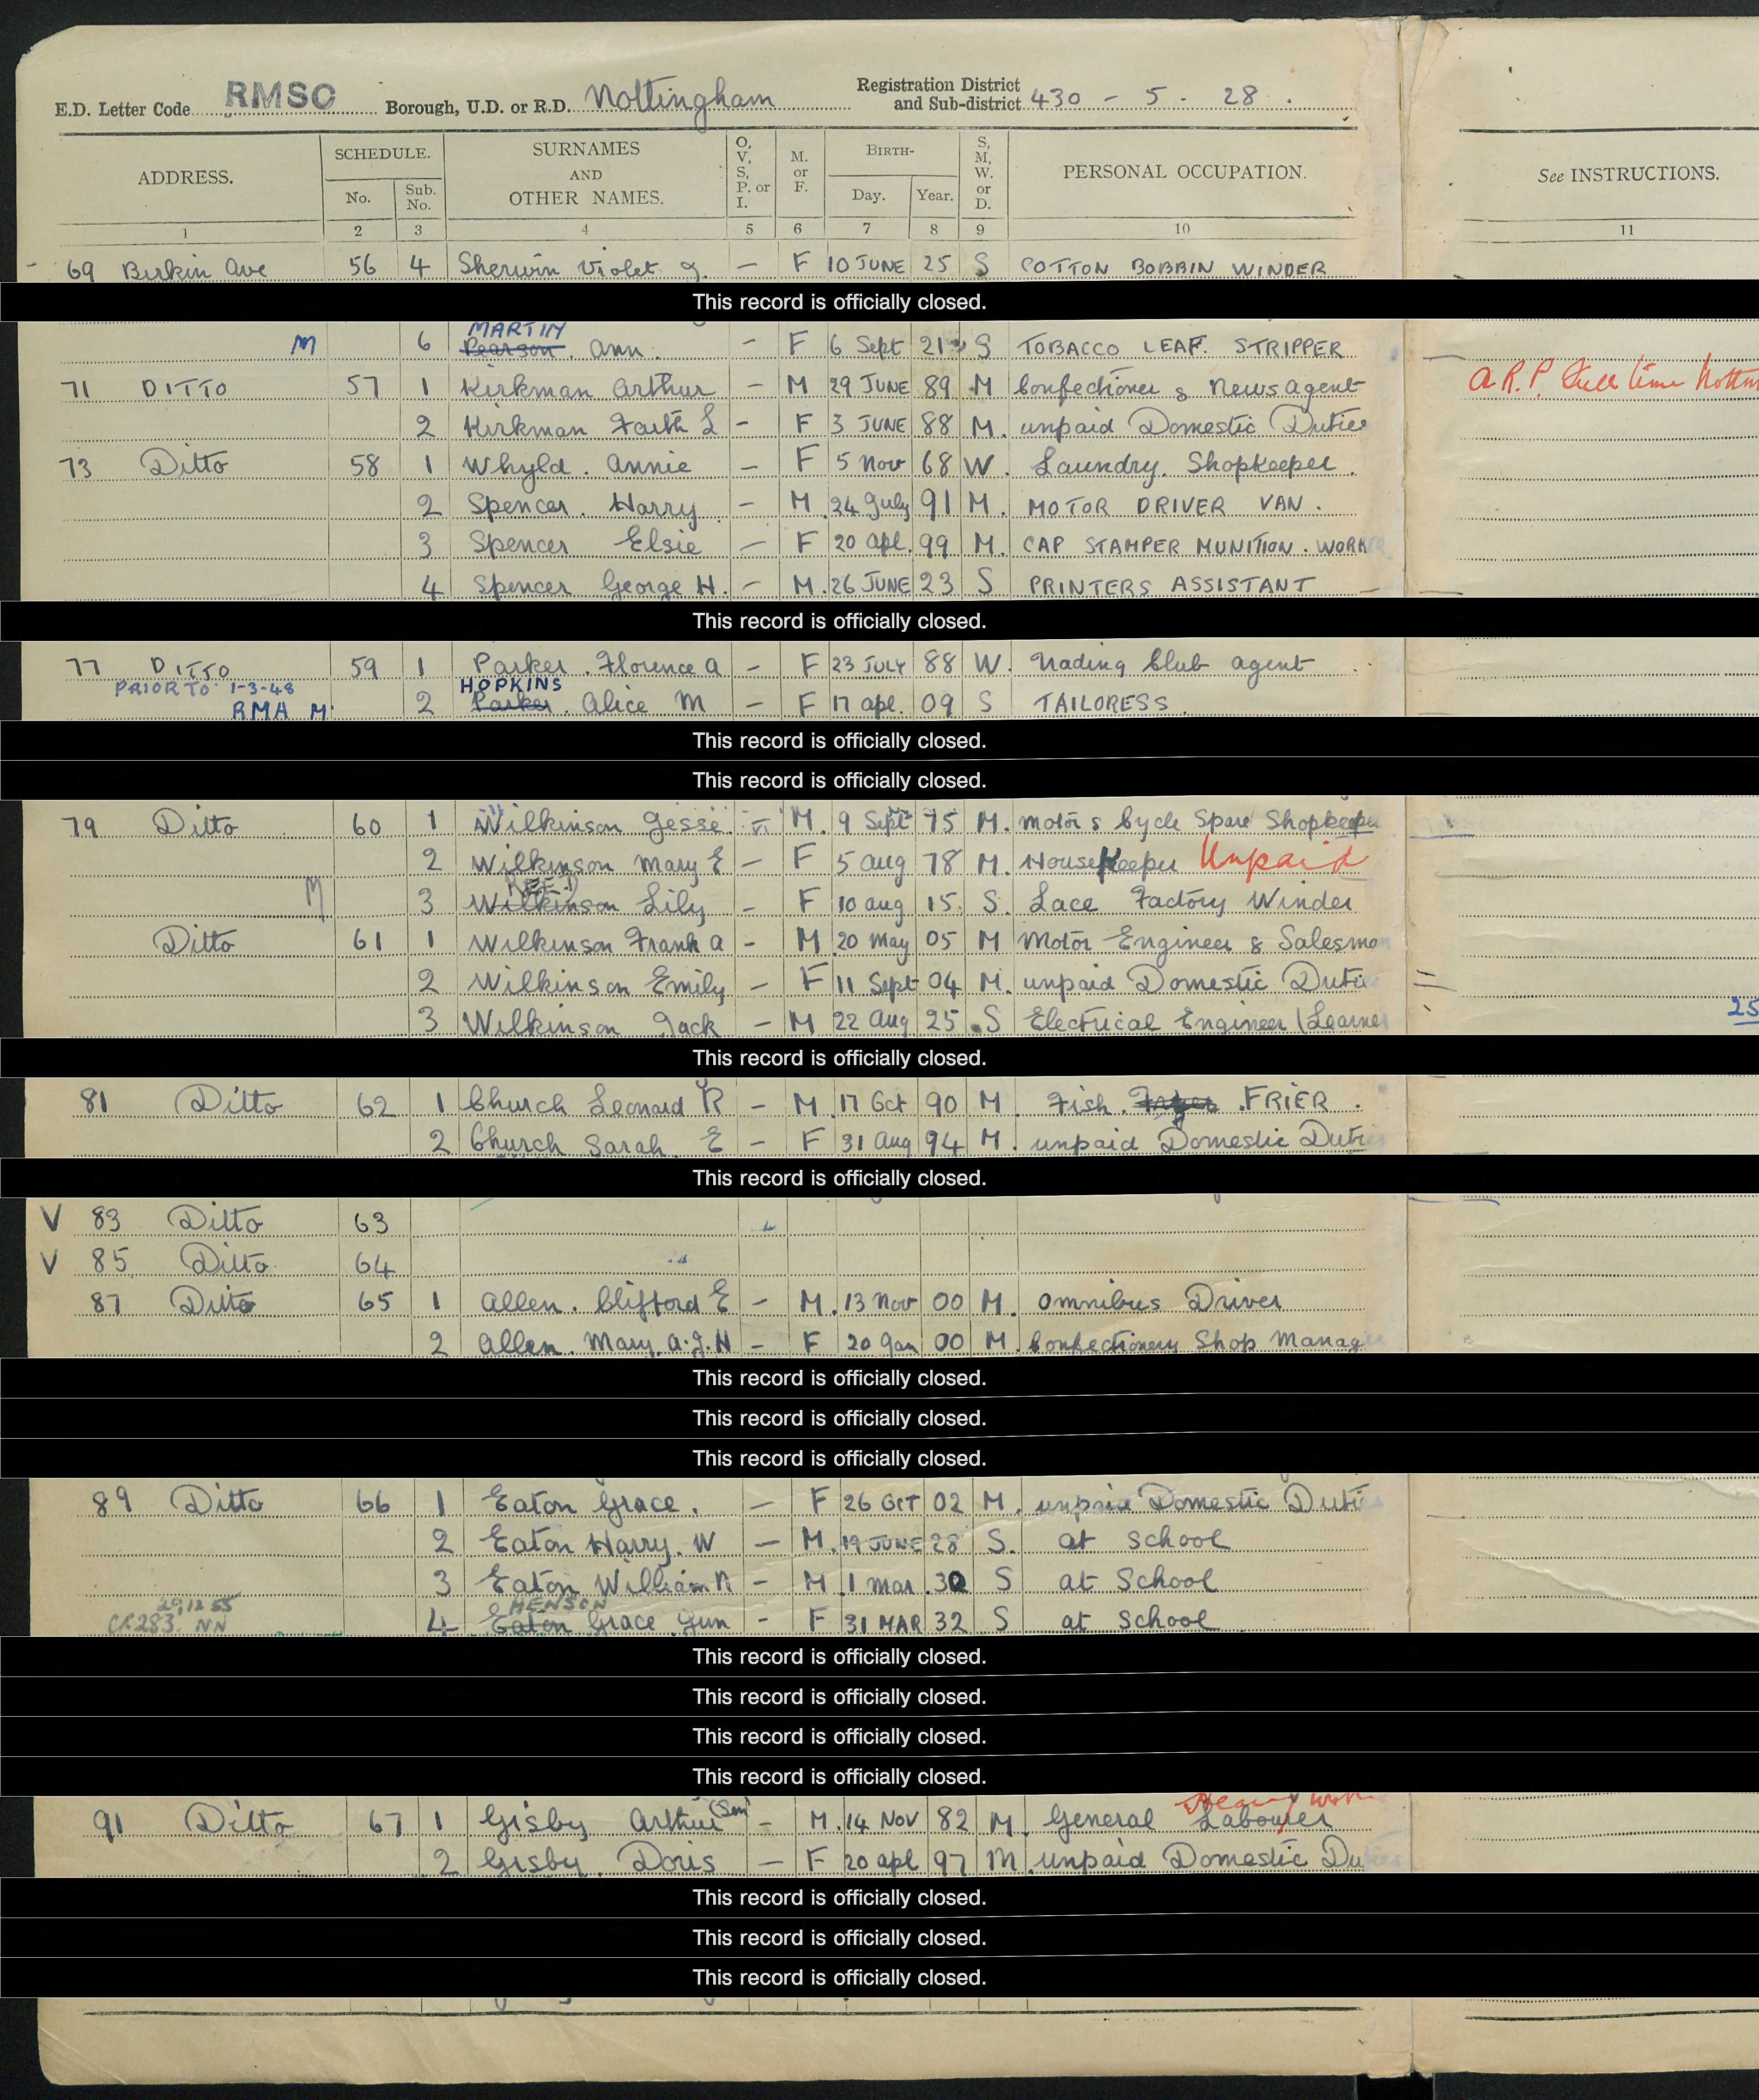 E.D. Letter Code RMSC Borough, U.D. or R.D. Nottingham Registration District and Sub-district 430 - 5 - 28 .
ADDRESS. SCHEDULE. No. Sub. No. SURNAMES AND OTHER NAMES. O, V, S, P. or I. M. or F. BIRTH- Day. Year. S, M, W. or D. PERSONAL OCCUPATION. See INSTRUCTIONS.
1 2 3 4 5 6 7 8 9 10 11
- 69 Birkin Ave 56 4 Sherwin Violet G. — F 10 JUNE 25 S COTTON BOBBIN WINDER
This record is officially closed.
MARTIN
M 6 Pearson. Ann. - F 6 Sept 21 S TOBACCO LEAF. STRIPPER
71 DITTO 57 1 Kirkman Arthur - M 29 JUNE 89 M Confectioner & Newsagent A.R.P. Full time
2 Kirkman Faith L - F 3 JUNE 88 M. unpaid Domestic Duties
73 Ditto 58 1 Whyld. Annie — F 5 Nov 68 W. Laundry. Shopkeeper.
2 Spencer. Harry. - M. 24 July 91 M. MOTOR DRIVER VAN.
3 Spencer Elsie — F 20 apl. 99 M. CAP STAMPER MUNITION. WORKER
4 Spencer George H. - M. 26 JUNE 23 S PRINTERS ASSISTANT
This record is officially closed.
77 DITTO 59 1 Parker. Florence A - F 23 JULY 88 W. Trading Club agent
PRIOR TO 1-3-48 HOPKINS
RMA M. 2 Parker. Alice M — F 17 apl. 09 S TAILORESS.
This record is officially closed.
This record is officially closed.
79 Ditto 60 1 Wilkinson Jesse. - M. 9 Sept 75 M. Motor & Cycle Spare Shopkeeper
2 Wilkinson Mary E — F 5 aug 78 M. HouseKeeper Unpaid
REED
M 3 Wilkinson Lily - F 10 aug 15. S. Lace Factory Winder
Ditto 61 1 Wilkinson Frank A - M 20 May 05 M Motor Engineer & Salesman
2 Wilkinson Emily — F 11 Sept 04 M. unpaid Domestic Duties
3 Wilkinson Jack — M 22 Aug 25 S Electrical Engineer (Learner 25
This record is officially closed.
81 Ditto 62 1 Church Leonard R - M. 17 Oct 90 M. Fish. Fryer .FRIER.
2 Church Sarah. E - F 31 Aug 94 M. unpaid Domestic Duties
This record is officially closed.
V 83 Ditto 63
V 85 Ditto 64
87 Ditto 65 1 Allen. Clifford E - M. 13 Nov 00 M. Omnibus Driver
2 Allen. Mary. A.J.H - F 20 Jan 00 M. Confectionery Shop Manag
This record is officially closed.
This record is officially closed.
This record is officially closed.
89 Ditto 66 1 Eaton Grace. — F 26 OCT 02 M. unpaid Domestic Duties
2 Eaton Harry. W — M. 19 JUNE 28 S. at School
3 Eaton William R - M. 1 Mar. 30 S at School
29.12.55 HENSON
CR283. NN 4 Eaton Grace Jun - F 31 MAR 32 S at School
This record is officially closed.
This record is officially closed.
This record is officially closed.
This record is officially closed.
Heavy Work
91 Ditto 67 1 Gisby Arthur (Sen) - M. 14 NOV 82 M. General Labourer
2 Gisby. Doris — F 20 apl 97 M. unpaid Domestic Duties
This record is officially closed.
This record is officially closed.
This record is officially closed.